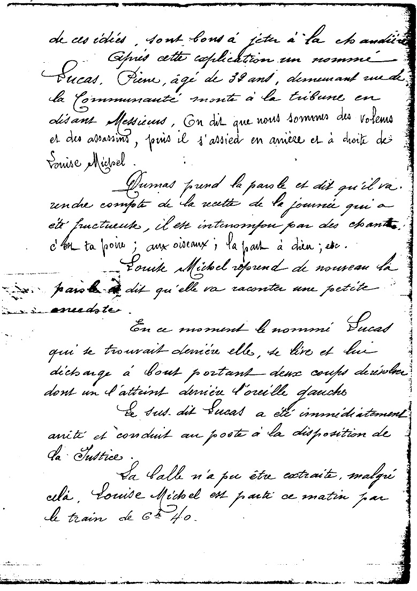 de ces idiés, sont bons à jeter à la chaudière
Après cette explication un nommé
Lucas, Pierre, âgé de 32 ans, demeurant rue de
la Communauté monte à la tribune en
disant Messieurs, On dit que nous sommes des voleurs
et des assassins, puis il s'assied en arrière et à droite de
Louise Michel.
Dumas prend la parole et dit qu'il va
rendre compte de la recette de la journée qui a
été fructueuse, il est interrompu par des chants,
c'est ta poire ; aux oiseaux ; la part à dieu ; etc.
Louise Michel reprend de nouveau la
parole et dit qu'elle va raconter une petite
anecdote
En ce moment le nommé Lucas
qui se trouvait derrière elle, se lève et lui
décharge à bout portant deux coups de révolver
dont un l'atteint derrière l'oreille gauche
Le sus. dit Lucas a été immédiatement
arrêté et conduit au poste à la disposition de
la Justice.
La balle n'a pu être extraite, malgré
celà, Louise Michel est partie ce matin par
le train de 6h 40.